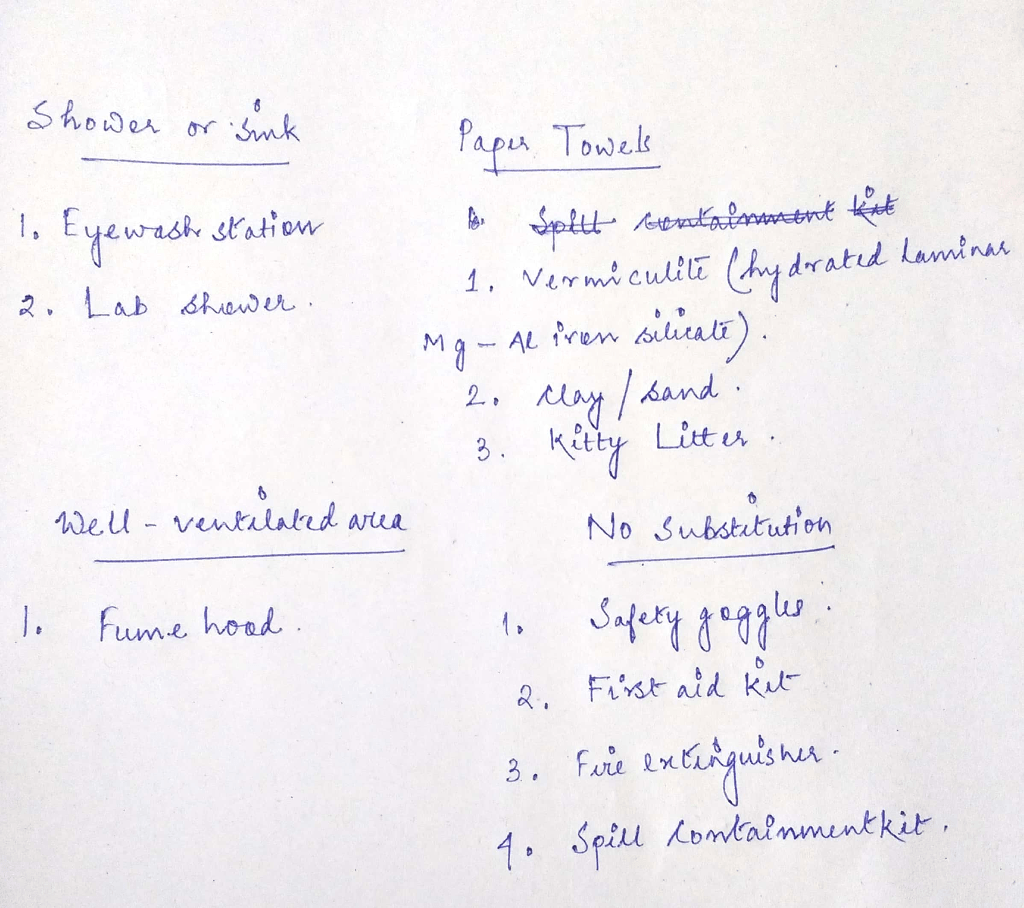 Shower or sink
1. Eyewash station
2. Lab shower.
Paper Towels
1. Spill containment kit
1. Vermiculite (hydrated laminar
Mg - Al iron silicate).
2. Clay / sand.
3. Kitty Litter.
Well - ventilated area
1. Fume hood.
No Substitution
1. Safety goggles.
2. First aid kit
3. Fire extinguisher.
4. Spill containment kit.